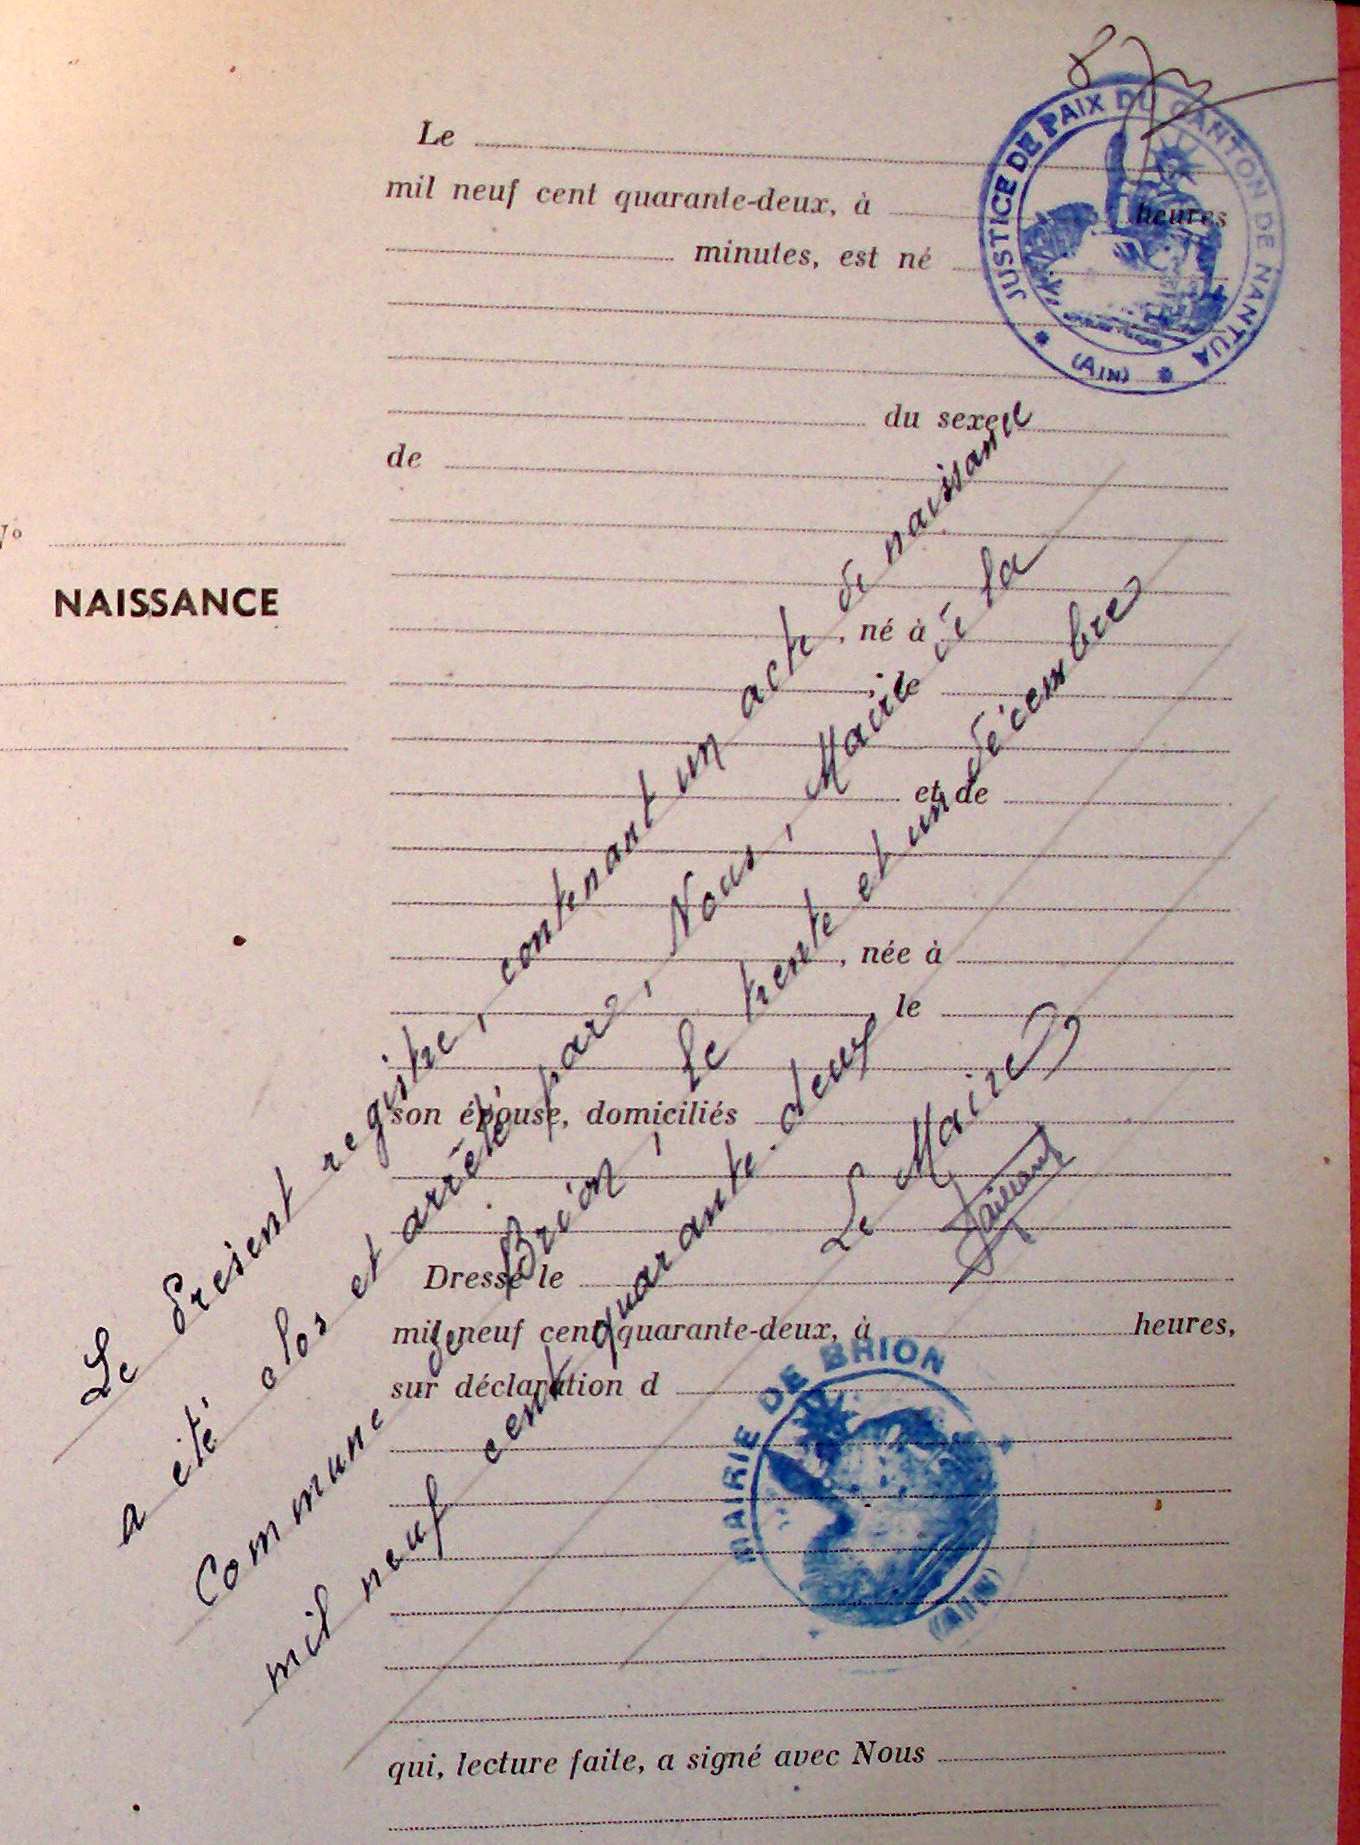 JUSTICE DE PAIX DU CANTON DE NANTUA
(AIN)
Le
mil neuf cent quarante-deux, à heures
minutes, est né
du sexe
de
N°
NAISSANCE
, né à
le
et de
, née à
le
son épouse, domiciliés
Dressé le
mil neuf cent quarante-deux, à heures,
sur déclaration d
qui, lecture faite, a signé avec Nous
Le présent registre, contenant un acte de naissance
a été clos et arrêté par, Nous, Maire de la
Commune de Brion, le trente et un décembre
mil neuf cent quarante-deux
Le Maire
MAIRIE DE BRION
(AIN)